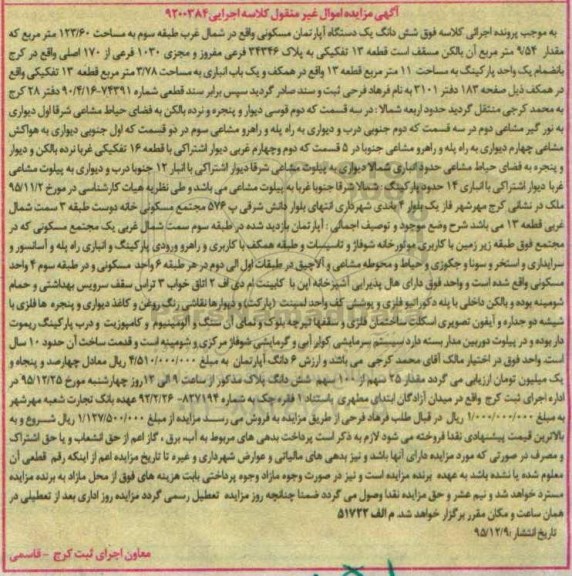 آگهی مزایده اموال غیر منقول کلاسه اجرایی ۹۲۰۰۳۸۴
به موجب پرونده اجرائی کلاسه فوق شش دانگ یک دستگاه آپارتمان مسکونی واقع در شمال غرب طبقه سوم به مساحت ۱۲۳/۶۰ متر مربع که
مقدار ۹/۵۴ متر مربع آن بالکن مسقف است قطعه ۱۳ تفکیکی به پلاک ۳۴۳۴۶ فرعی مفروز و مجزی ۱۰۳۰ فرعی از ۱۷۰ اصلی واقع در کرج
بانضمام یک واحد پارکینگ به مساحت ۱۱ متر مربع قطعه ۱۳ واقع در همکف و یک باب انباری به مساحت ۳/۷۸ متر مربع قطعه ۱۳ تفکیکی واقع
در همکف ذیل صفحه ۱۸۳ دفتر ۳۱۰۱ به نام فرهاد فرحی ثبت و سند صادر گردید سپس برابر سند قطعی شماره ۷۴۳۹۱-۹۰/۴/۱۶ دفتر ۲۸ کرج
به محمد کرجی منتقل گردید حدود اربعه شمالا : در سه قسمت که دوم قوسی دیوار و پنجره و نرده بالکن به فضای حیاط مشاعی شرقا اول دیواری
به نور گیر مشاعی دوم در سه قسمت که دوم جنوبی درب و دیواری به راه پله و راهرو مشاعی سوم در دو قسمت که اول جنوبی دیواری به هواکش
مشاعی چهارم دیواری به راه پله و راهرو مشاعی جنوبا در ۵ قسمت که دوم وچهارم غربی دیوار اشتراکی با قطعه ۱۶ تفکیکی غربا نرده بالکن و دیوار
و پنجره به فضای حیاط مشاعی حدود انباری شمالا دیواری به پیلوت مشاعی شرقا دیوار اشتراکی با انبار ۱۲ جنوبا درب و دیواری به پیلوت مشاعی
غربا دیوار اشتراکی با انباری ۱۴ حدود پارکینگ : شمالا شرقا جنوبا غربا به پیلوت مشاعی می باشد و طی نظریه هیات کارشناسی در مورخ ۹۵/۱۱/۲
ملک در نشانی کرج مهرشهر فاز یک بلوار ۴ باندی شهرداری انتهای بلوار دانش شرقی پ ۵۷۶ مجتمع مسکونی خانه دوست طبقه ۳ سمت شمال
غربی قطعه ۱۳ می باشد شرح وضع موجود و توصیف اجمالی : آپارتمان بازدید شده در طبقه سوم سمت شمال غربی یک مجتمع مسکونی که در
مجتمع فوق طبقه زیر زمین با کاربری موتورخانه شوفاژ و تاسیسات و طبقه همکف با کاربری و راهرو ورودی پارکینگ و انباری راه پله و آسانسور و
سرایداری و استخر و سونا و جکوزی و حیاط و محوطه مشاعی و آلاچیق در طبقات اول الی دوم در هر طبقه ۶ واحد مسکونی و در طبقه سوم ۴ واحد
مسکونی واقع شده است و واحد فوق دارای هال پذیرایی آشپزخانه اپن با کابینت ام دی اف ۲ اتاق خواب ۳ تراس سقف سرویس بهداشتی و حمام
شومینه بوده و بالکن داخلی با پله دکوراتیو فلزی و پوشش کف واحد لمینت (پارکت) و دیوارها نقاشی رنگ روغن و کاغذ دیواری و پنجره ها فلزی با
شیشه دو جداره و آیفون تصویری اسکلت ساختمان فلزی و سقفها تیرچه بلوک و نمای آن سنگ و آلومینیوم و کامپوزیت و درب پارکینگ ریموت
دار بوده و در پیلوت دوربین مدار بسته دارد سیستم سرمایشی کولر آبی و گرمایشی شوفاژ مرکزی و شومینه است و قدمت ساخت آن حدود ۱۰ سال
است. واحد فوق در اختیار مالک آقای محمد کرجی می باشد و ارزش ۶ دانگ آپارتمان به مبلغ ۴/۵۱۰/۰۰۰/۰۰۰ ریال معادل چهارصد و پنجاه و
یک میلیون تومان ارزیابی می گردد مقدار ۲۵ سهم از ۱۰۰ سهم شش دانگ پلاک مذکور از ساعت ۹ الی ۱۲ روز چهارشنبه مورخ ۹۵/۱۲/۲۵ در
اداره اجرای ثبت کرج واقع در میدان آزادگان ابتدای مطهری باستناد ۱ فقره چک به شماره ۸۲۷۱۹۴-۹۲/۲/۲۶ عهده بانک تجارت شعبه مهرشهر
به مبلغ ۱/۰۰۰/۰۰۰/۰۰۰ ریال در قبال طلب فرهاد فرحی از طریق مزایده به فروش می رسد مزایده از مبلغ ۱/۱۲۷/۵۰۰/۰۰۰ ریال شروع و به
بالاترین قیمت پیشنهادی نقدا فروخته می شود لازم به ذکر است پرداخت بدهی های مربوط به آب، برق ، گاز اعم از حق انشعاب و یا حق اشتراک
و مصرف در صورتی که مورد مزایده دارای آنها باشد و نیز بدهی های مالیاتی و عوارض شهرداری و غیره تا تاریخ مزایده اعم از اینکه رقم قطعی آن
معلوم شده یا نشده باشد به عهده برنده مزایده است و نیز در صورت وجوه مازاد وجوه پرداختی بابت هزینه های فوق از محل مازاد به برنده مزایده
مسترد خواهد شد و نیم عشر و حق مزایده نقدا وصول می گردد ضمنا چنانچه روز مزایده تعطیل رسمی گردد مزایده روز اداری بعد از تعطیلی در
همان ساعت و مکان مقرر برگزار خواهد شد. م الف ۵۱۷۲۲
تاریخ انتشار :۹۵/۱۲/۹
معاون اجرای ثبت کرج - قاسمی